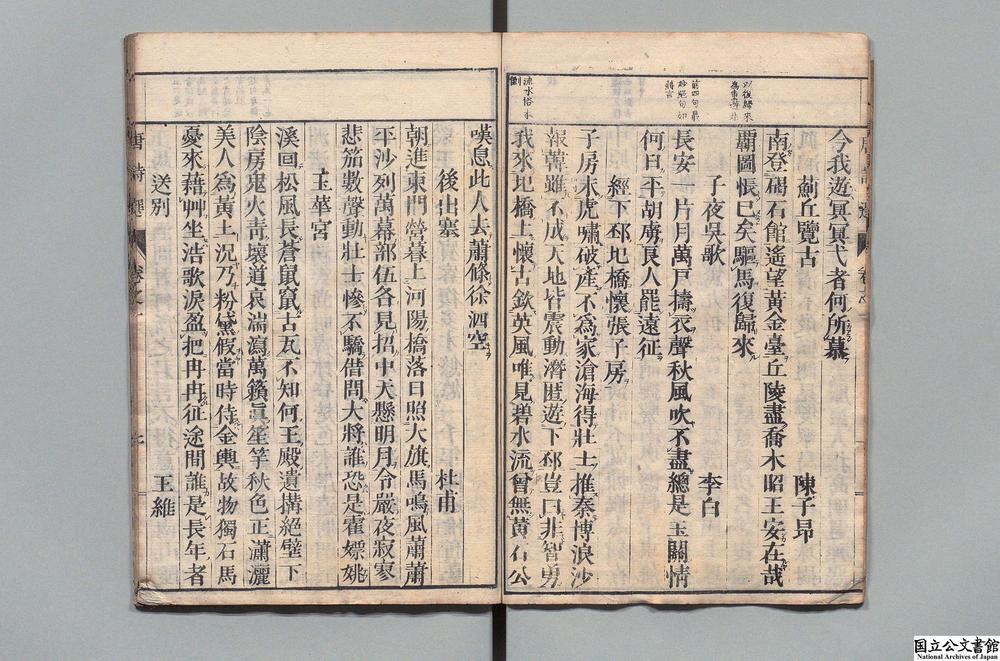 今我遊冥冥弋者何所慕
薊丘覽古
陳子昂
南登碣石館遙望黃金臺丘陵盡喬木昭王安在哉
霸圖悵已矣驅馬復歸來
子夜吳歌
李白
長安一片月萬戶擣衣聲秋風吹不盡總是玉關情
何日平胡虜良人罷遠征
經下邳圯橋懷張子房
子房未虎嘯破產不爲家滄海得壯士推秦博浪沙
報韓雖不成天地皆震動潛匿遊下邳豈曰非智勇
我來圯橋上懷古欽英風唯見碧水流曾無黃石公
嘆息此人去蕭條徐泗空
後出塞
杜甫
朝進東門營暮上河陽橋落日照大旗馬鳴風蕭蕭
平沙列萬幕部伍各見招中天懸明月令嚴夜寂寥
悲笳數聲動壯士慘不驕借問大將誰恐是霍嫖姚
玉華宮
溪回松風長蒼鼠竄古瓦不知何王殿遺搆絕壁下
陰房鬼火青壞道哀湍瀉萬籟眞笙竽秋色正瀟灑
美人爲黃土況乃粉黛假當時侍金輿故物獨石馬
憂來藉艸坐浩歌淚盈把冉冉征途間誰是長年者
送別
王維
唐詩選
七
国立公文書館
National Archives of Japan